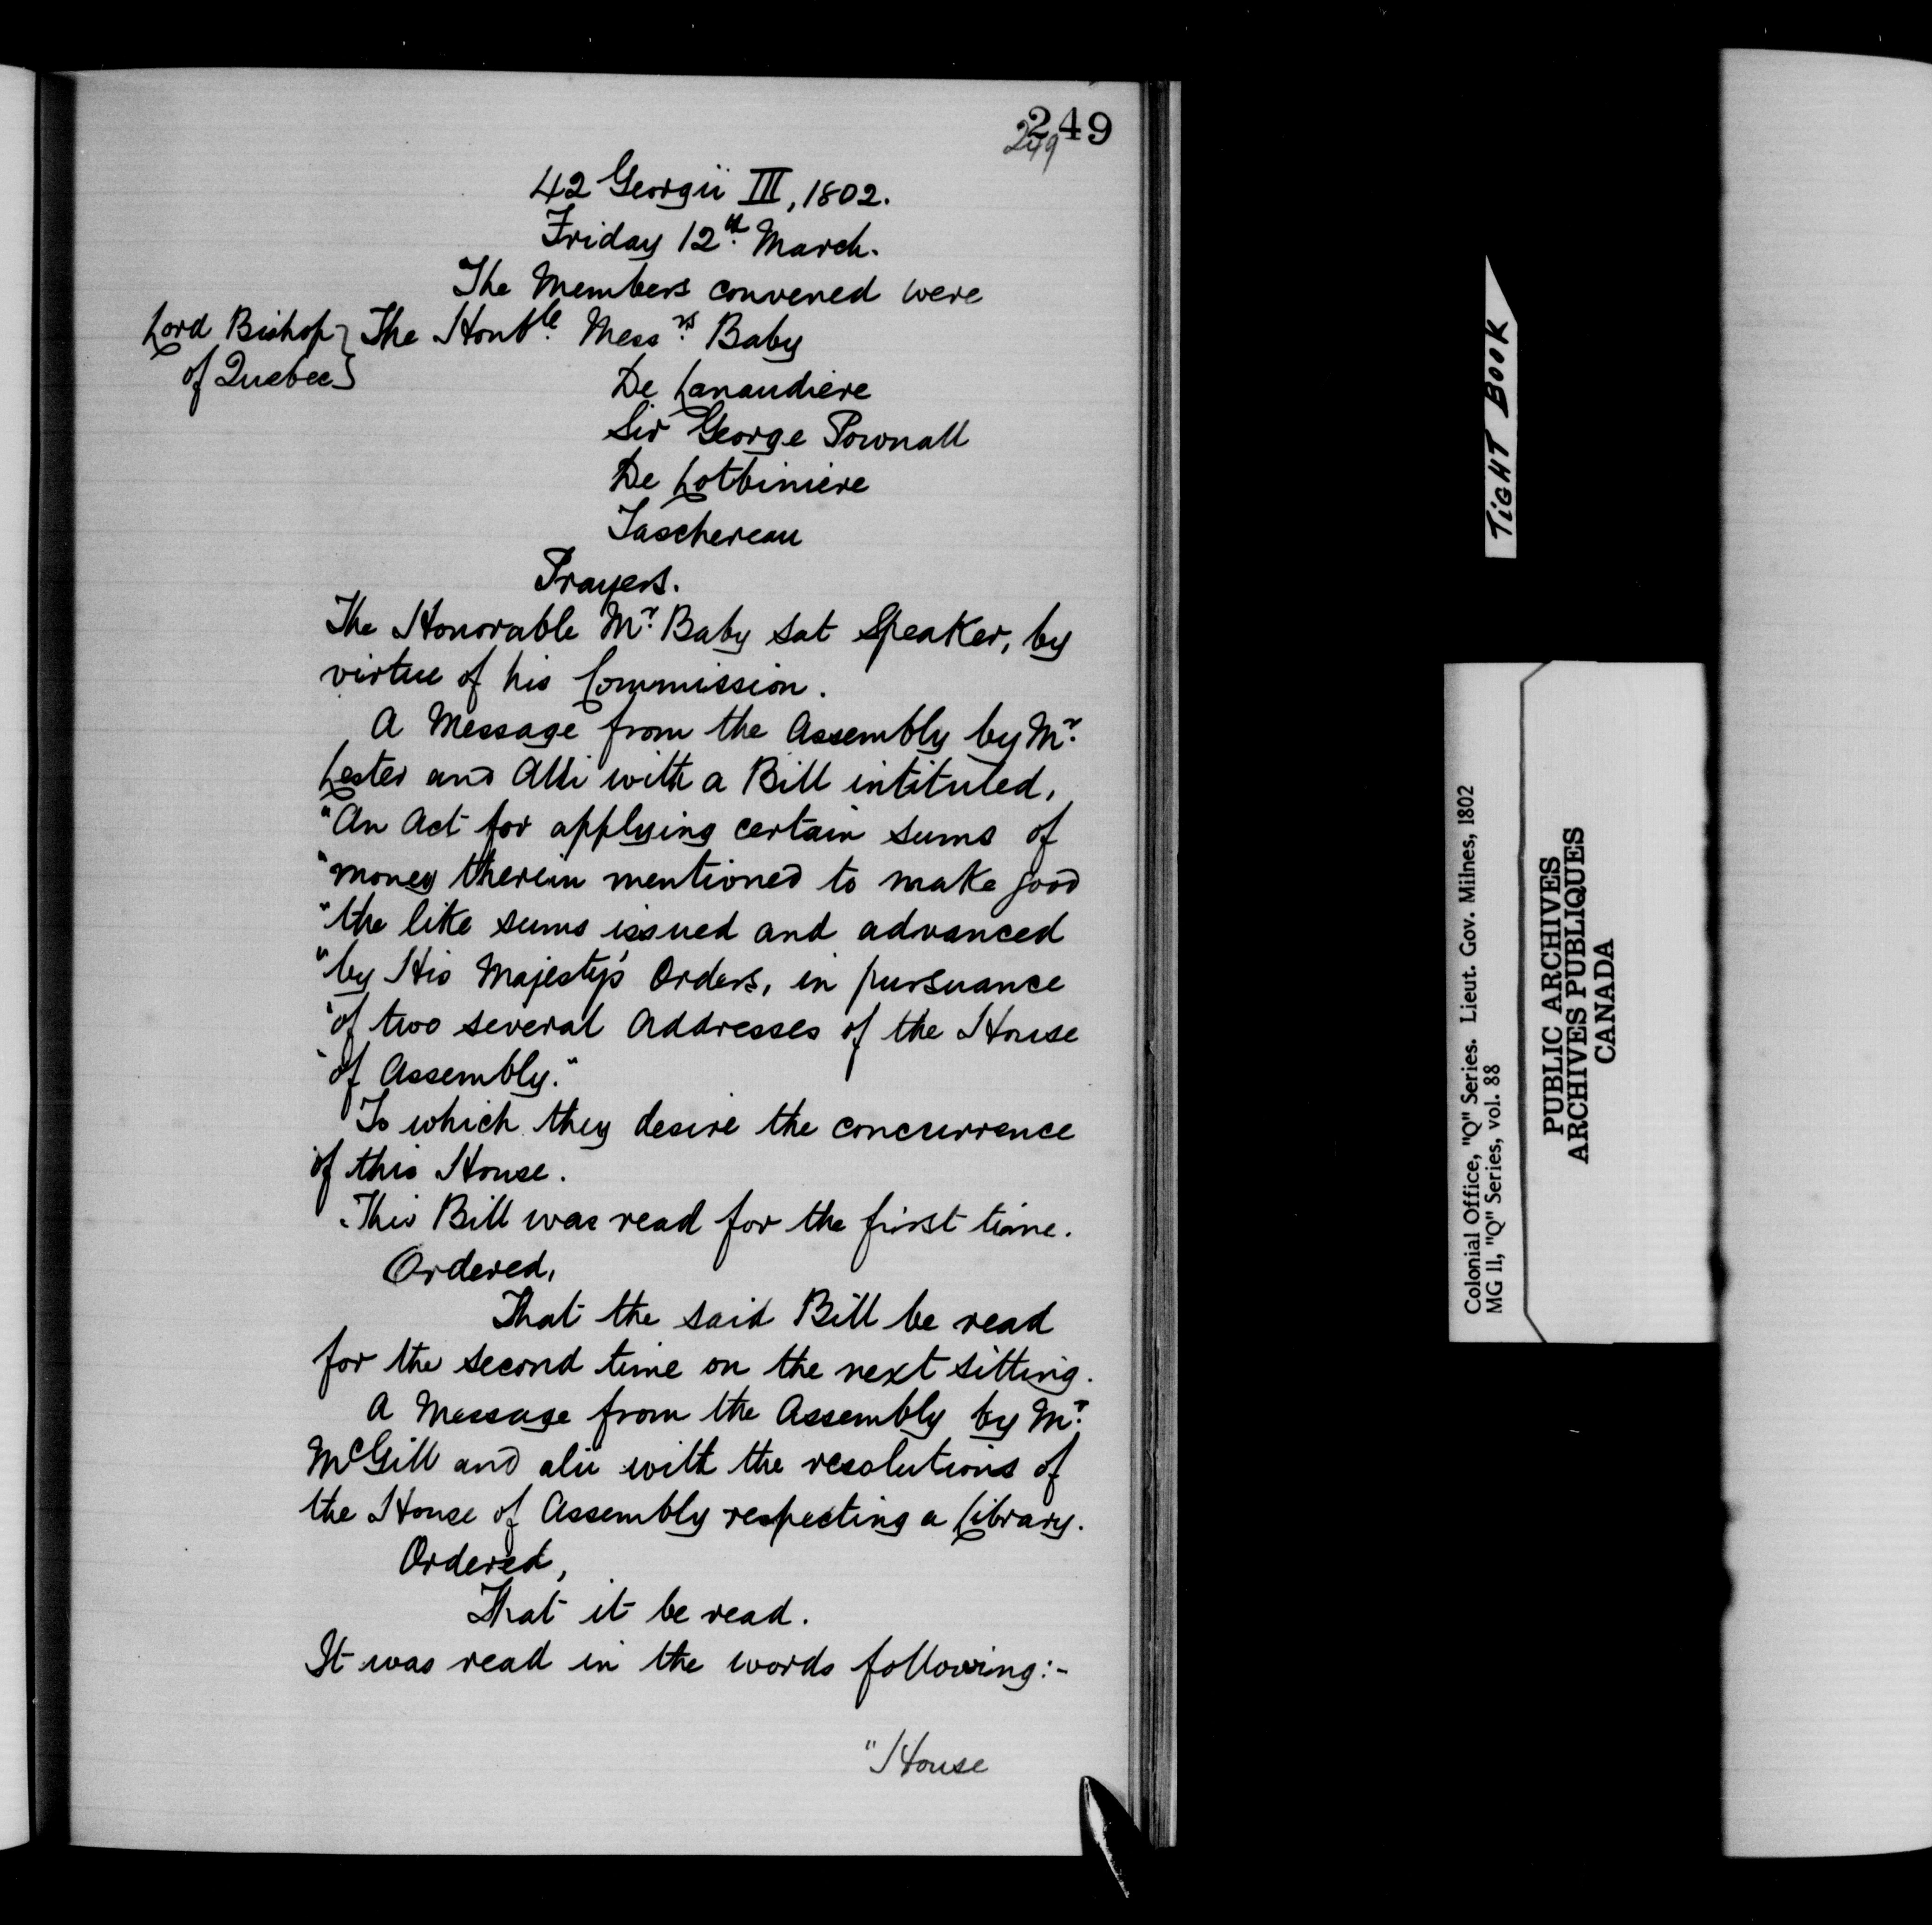 249
249
42 Georgii III, 1802.
Friday 12th. March.
The Members convened were
Lord Bishop } The Honble. Messrs. Baby
of Quebec }
De Lanaudiere
Sir George Pownall
De Lotbiniere
Taschereau
Prayers.
The Honorable Mr. Baby sat Speaker, by
virtue of his Commission.
A Message from the Assembly by Mr.
Lester and Alli with a Bill intituled,
"An Act for applying certain sums of
"money therein mentioned to make good
"the like sums issued and advanced
"by His Majesty's Orders, in pursuance
"of two several Addresses of the House
"of Assembly."
To which they desire the concurrence
of this House.
This Bill was read for the first time.
Ordered,
That the said Bill be read
for the second time on the next sitting.
A Message from the Assembly by Mr.
McGill and alii with the resolutions of
the House of Assembly respecting a Library.
Ordered,
That it be read.
It was read in the words following:-
"House
TIGHT BOOK
Colonial Office, "Q" Series. Lieut. Gov. Milnes, 1802
MG 11, "Q" Series, vol. 88
PUBLIC ARCHIVES
ARCHIVES PUBLIQUES
CANADA